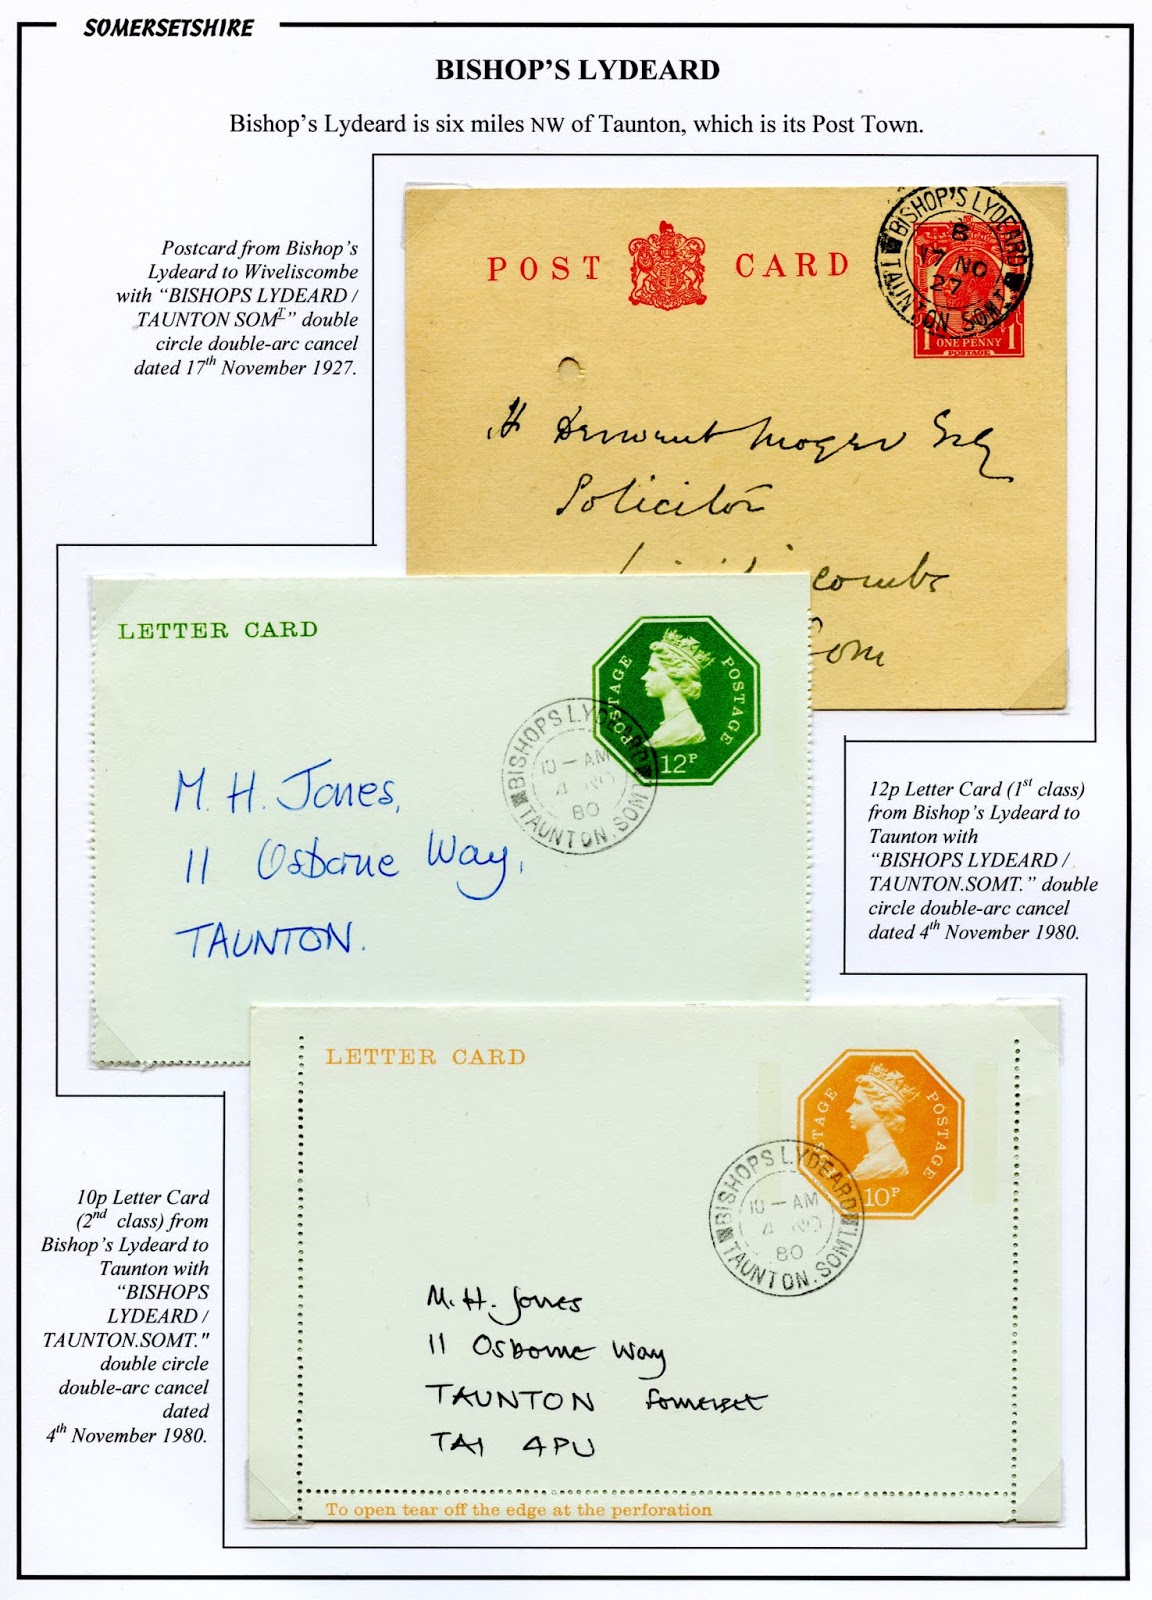 SOMERSETSHIRE
BISHOP'S LYDEARD
Bishop's Lydeard is six miles NW of Taunton, which is its Post Town.
Postcard from Bishop's
Lydeard to Wiveliscombe
with “BISHOPS LYDEARD /
TAUNTON SOMT” double
circle double-arc cancel
dated 17th November 1927.
POST CARD
BISHOP'S LYDEARD
B
17 NO
27
TAUNTON SOMT
1 ONE PENNY 1
POSTAGE
H Derwent Moger Esq
Solicitor
combe
Som
LETTER CARD
POSTAGE POSTAGE
12P
BISHOPS LYDEARD
10 – AM
4 NO
80
TAUNTON.SOMT.
M. H. Jones,
11 Osborne Way,
TAUNTON.
12p Letter Card (1st class)
from Bishop's Lydeard to
Taunton with
“BISHOPS LYDEARD /
TAUNTON.SOMT.” double
circle double-arc cancel
dated 4th November 1980.
LETTER CARD
POSTAGE POSTAGE
10P
BISHOPS LYDEARD
10 – AM
4 NO
80
TAUNTON.SOMT.
M. H. Jones
11 Osborne Way
TAUNTON Somerset
TA1 4PU
To open tear off the edge at the perforation
10p Letter Card
(2nd class) from
Bishop's Lydeard to
Taunton with
“BISHOPS
LYDEARD /
TAUNTON.SOMT."
double circle
double-arc cancel
dated
4th November 1980.